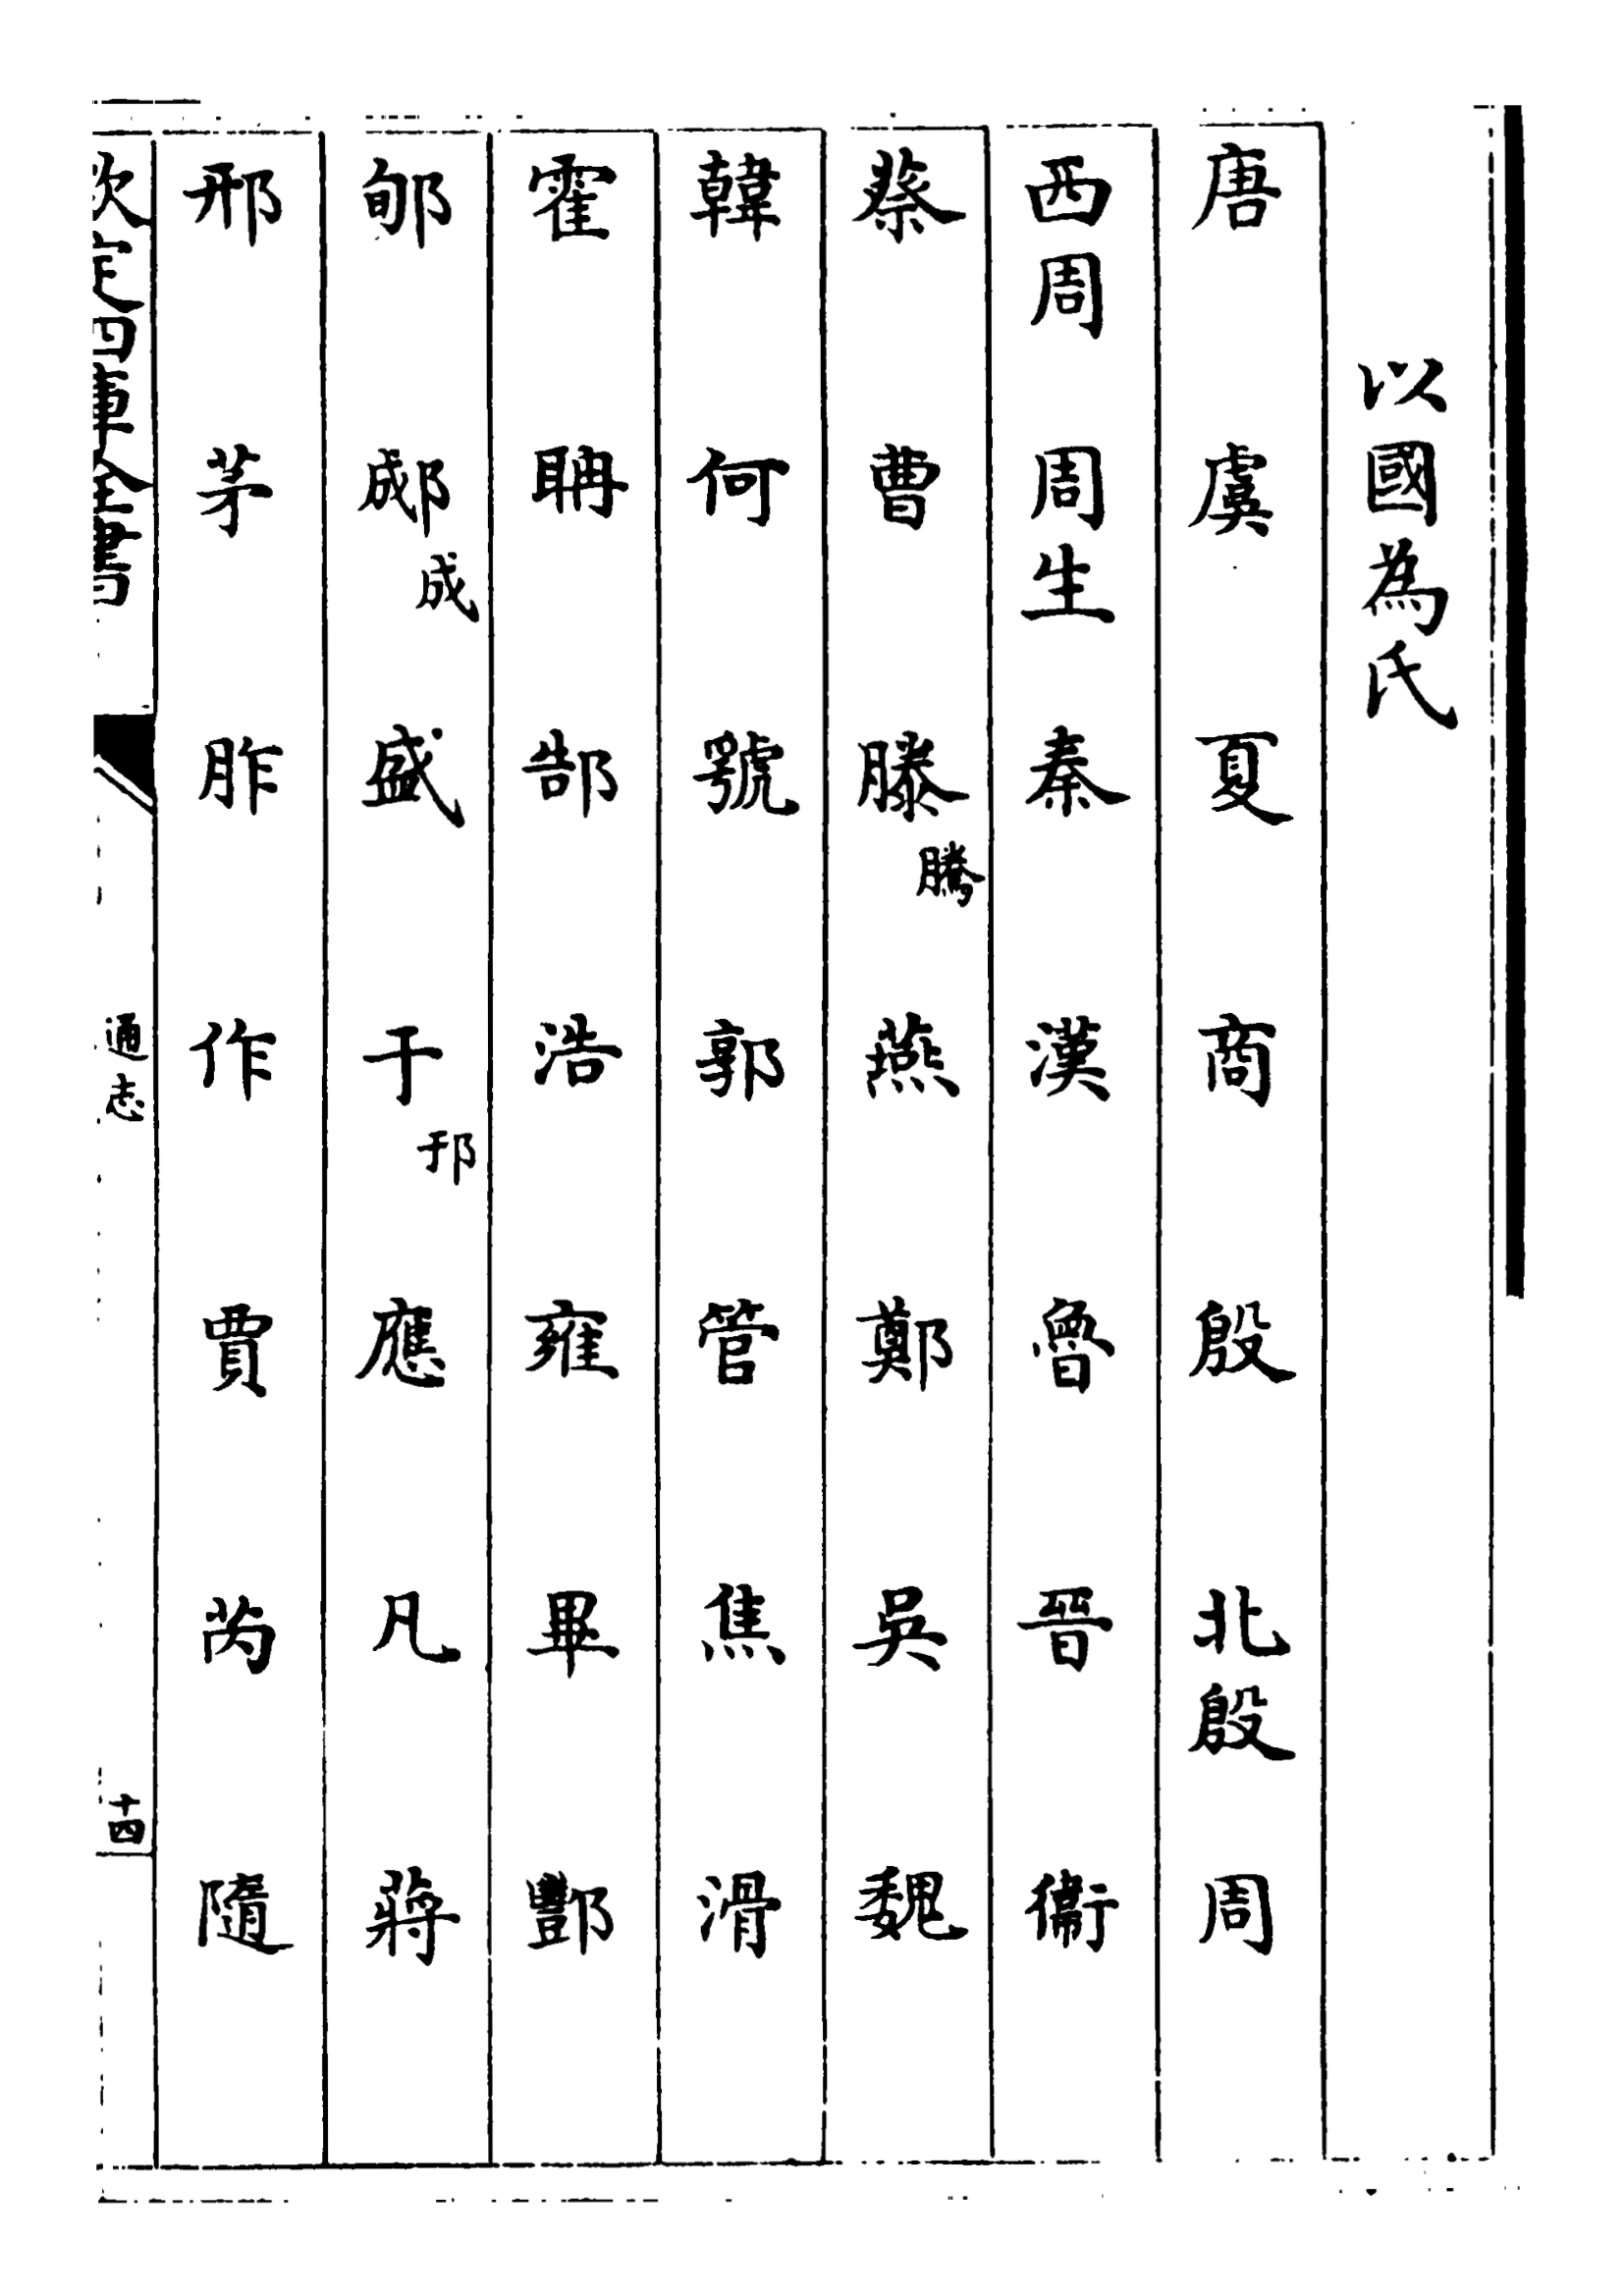 以國為氏
唐 虞 夏 商 殷 北殷 周
西周 周生 秦 漢 魯 晉 衞
蔡 曹 滕騰 燕 鄭 吳 魏
韓 何 號 郭 管 焦 滑
霍 聃 郜 浩 雍 畢 酆
郇 郕成 盛 于邘 應 凡 蔣
邢 茅 胙 作 賈 芮 隨
欽定四庫全書 通志 十四